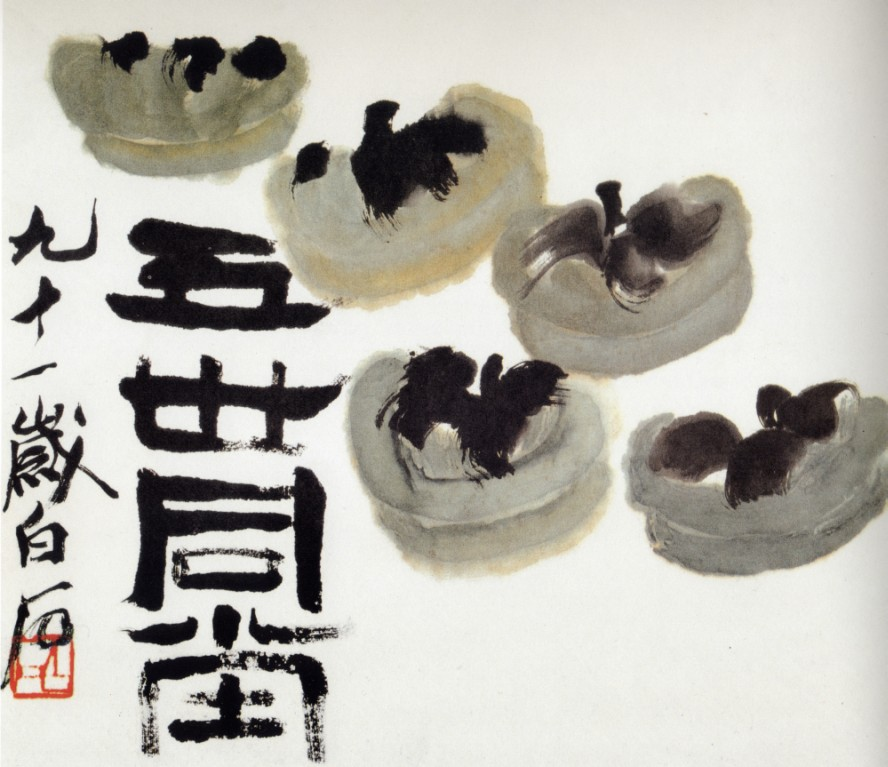 五世同堂
九十一歲白石